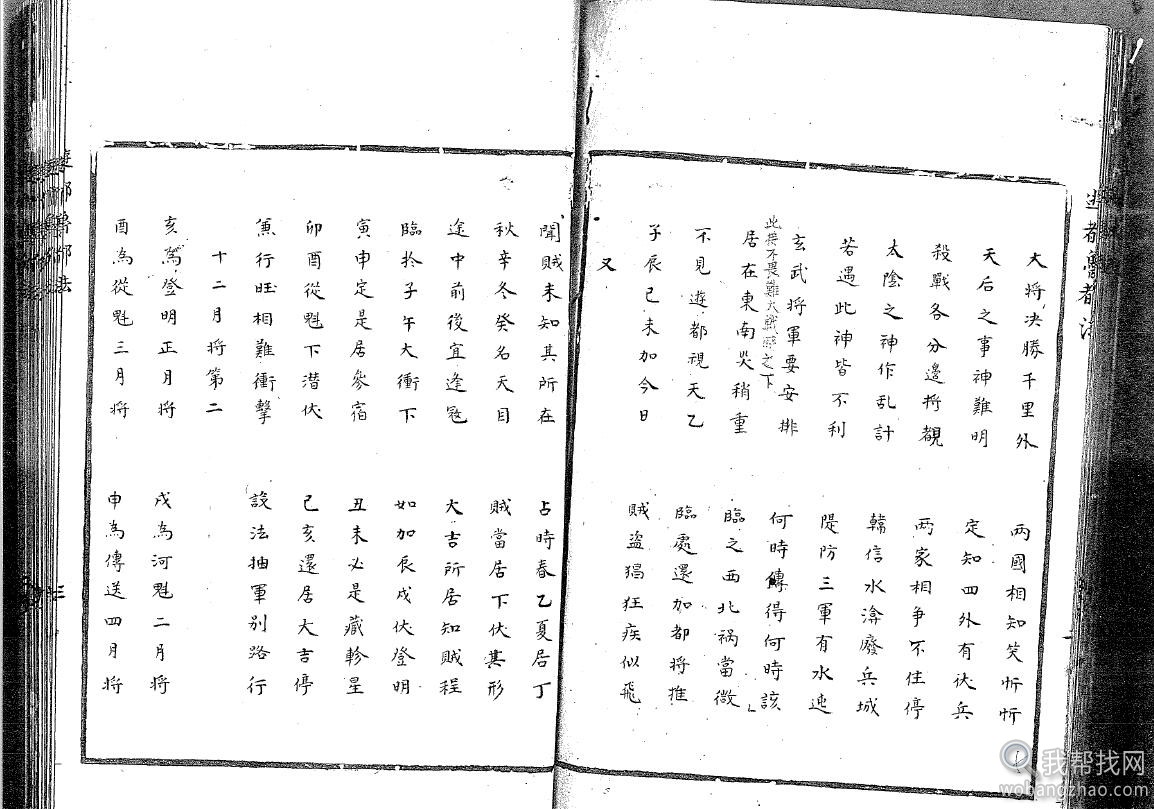 遊都魯都法
大将决勝千里外　两國相知笑忻忻
天后之事神難明　定知四外有伏兵
殺戰各分邊將覩　两家相争不住停
太陰之神作乱計　韓信水渰廢兵城
若遇此神皆不利　隄防三軍有水迍
玄武将軍要安排　何時傳得何時該
此
居在東南災稍重　臨之西北禍當微
不見遊都視天乙　臨處還加都将推
子辰巳未加今日　賊盜猖狂疾似飛
又
聞賊未知其所在　占時春乙夏居丁
秋辛冬癸名天目　賊當居下伏其形
途中前後宜逢冦　大吉所居知賊程
臨於子午大衝下　如加辰戌伏登明
寅申定是居參宿　丑未必是藏軫星
卯酉從魁下潜伏　巳亥還居大吉停
兼行旺相難衝擊　設法抽軍别路行
十二月将第二
亥為登明正月将　戌為河魁二月将
酉為從魁三月将　申為傳送四月将
遊都魯都法
三
我帮找网
wobangzhao.com